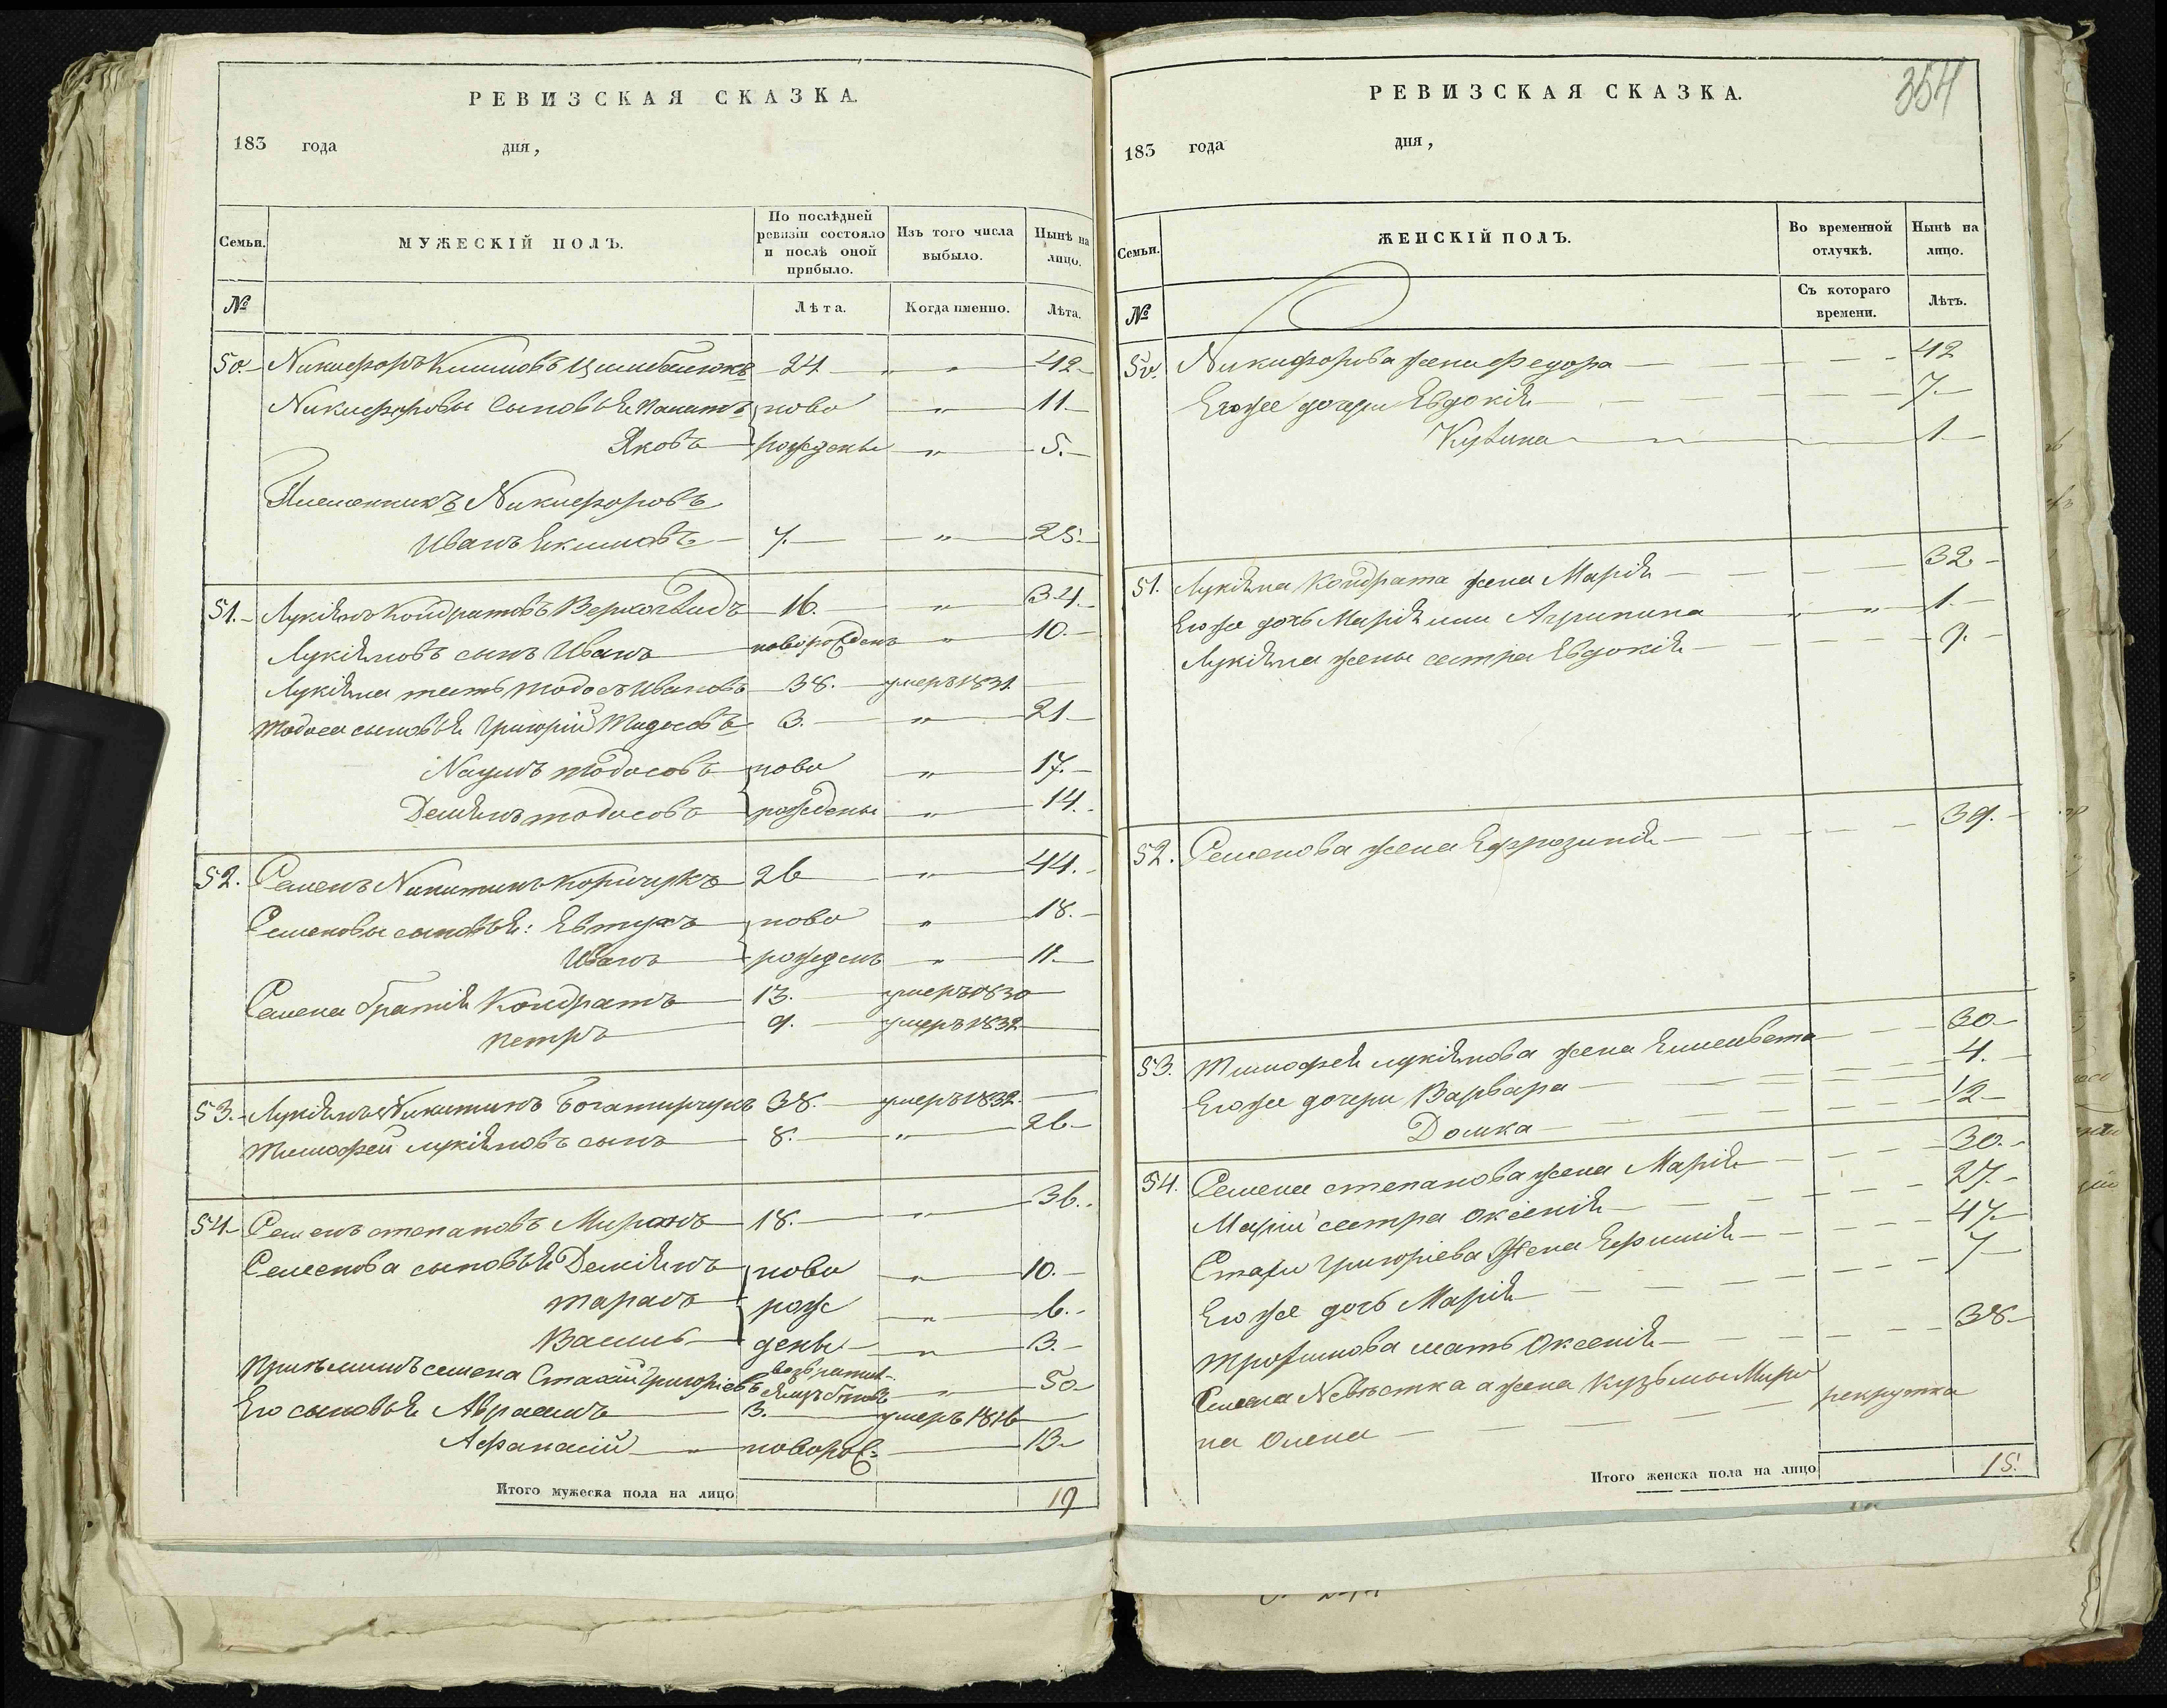 РЕВИЗСКАЯ СКАЗКА.
183 года дня,
Семьи. МУЖЕСКІЙ ПОЛЪ. По послѣдней ревизіи состояло и послѣ оной прибыло. Изъ того числа выбыло. Нынѣ на лицо.
№ Лѣта. Когда именно. Лѣта.
50. Никифоръ 24 " " 42
Никифоровы сыновья Игнатъ ново " 11
Яковъ рождены " 5.
Племенникъ Никифоровъ
Иванъ Екимовъ 7. " 25.
51. Лукіянъ Кондратовъ 16 " 34.
Лукіяновъ сынъ Иванъ новорожденъ " 10.
Лукіяна тесть Тодосъ Ивановъ 38. умеръ 1831
Тодоса сыновья Григорій Тидосовъ 3. " 21
Наумъ Тодосовъ ново " 17.
Демянъ Тодосовъ рождены " 14.
52. Семенъ Никитинъ 26 " 44.
Семеновы сыновья: Евтухъ ново " 18.
Иванъ рожденъ " 11.
Семена братія Кондратъ 13. умеръ 1830
Петръ 9. умеръ 1832
53. Лукіянъ Никитинъ 38. умеръ 1832.
Тимофей Лукіяновъ сынъ 8. " 26
54. Семенъ Степановъ Миронъ 18. " 36.
Семенова сыновья Демянъ ново " 10.
Тарасъ рож " 6.
Василь дены " 3.
Семена Григоріевъ " 50
Его сыновья Авраамъ 3. умеръ 1816
Афанасій " новорож: 13
Итого мужеска пола на лицо 19
РЕВИЗСКАЯ СКАЗКА.
354
183 года дня,
Семьи. ЖЕНСКІЙ ПОЛЪ. Во временной отлучкѣ. Нынѣ на лицо.
№ Съ котораго времени. Лѣтъ.
50. Никифорова жена Федора 42
Его же дочери Евдокія 7.
1
51. Лукіяна Кондрата жена Марія 32.
Его же дочь Марія или Агрипина " " 1.
Лукіяна жены сестра Евдокія 9.
52. Семенова жена Ефрозинія 39.
53. Тимофея Лукіянова жена Елисавета 30
Его же дочери Варвара 4.
Домка 1/2
54. Семена Степанова жена Марія 30.
Маріи сестра Оксенія 27.
Григоріева жена Ефимія 47
Его же дочь Марія 7
Трофимова мать Оксенія 38
Семена Невѣстка а жена Кузьмы Миро рекрутка
на Олена
Итого женска пола на лицо 15.